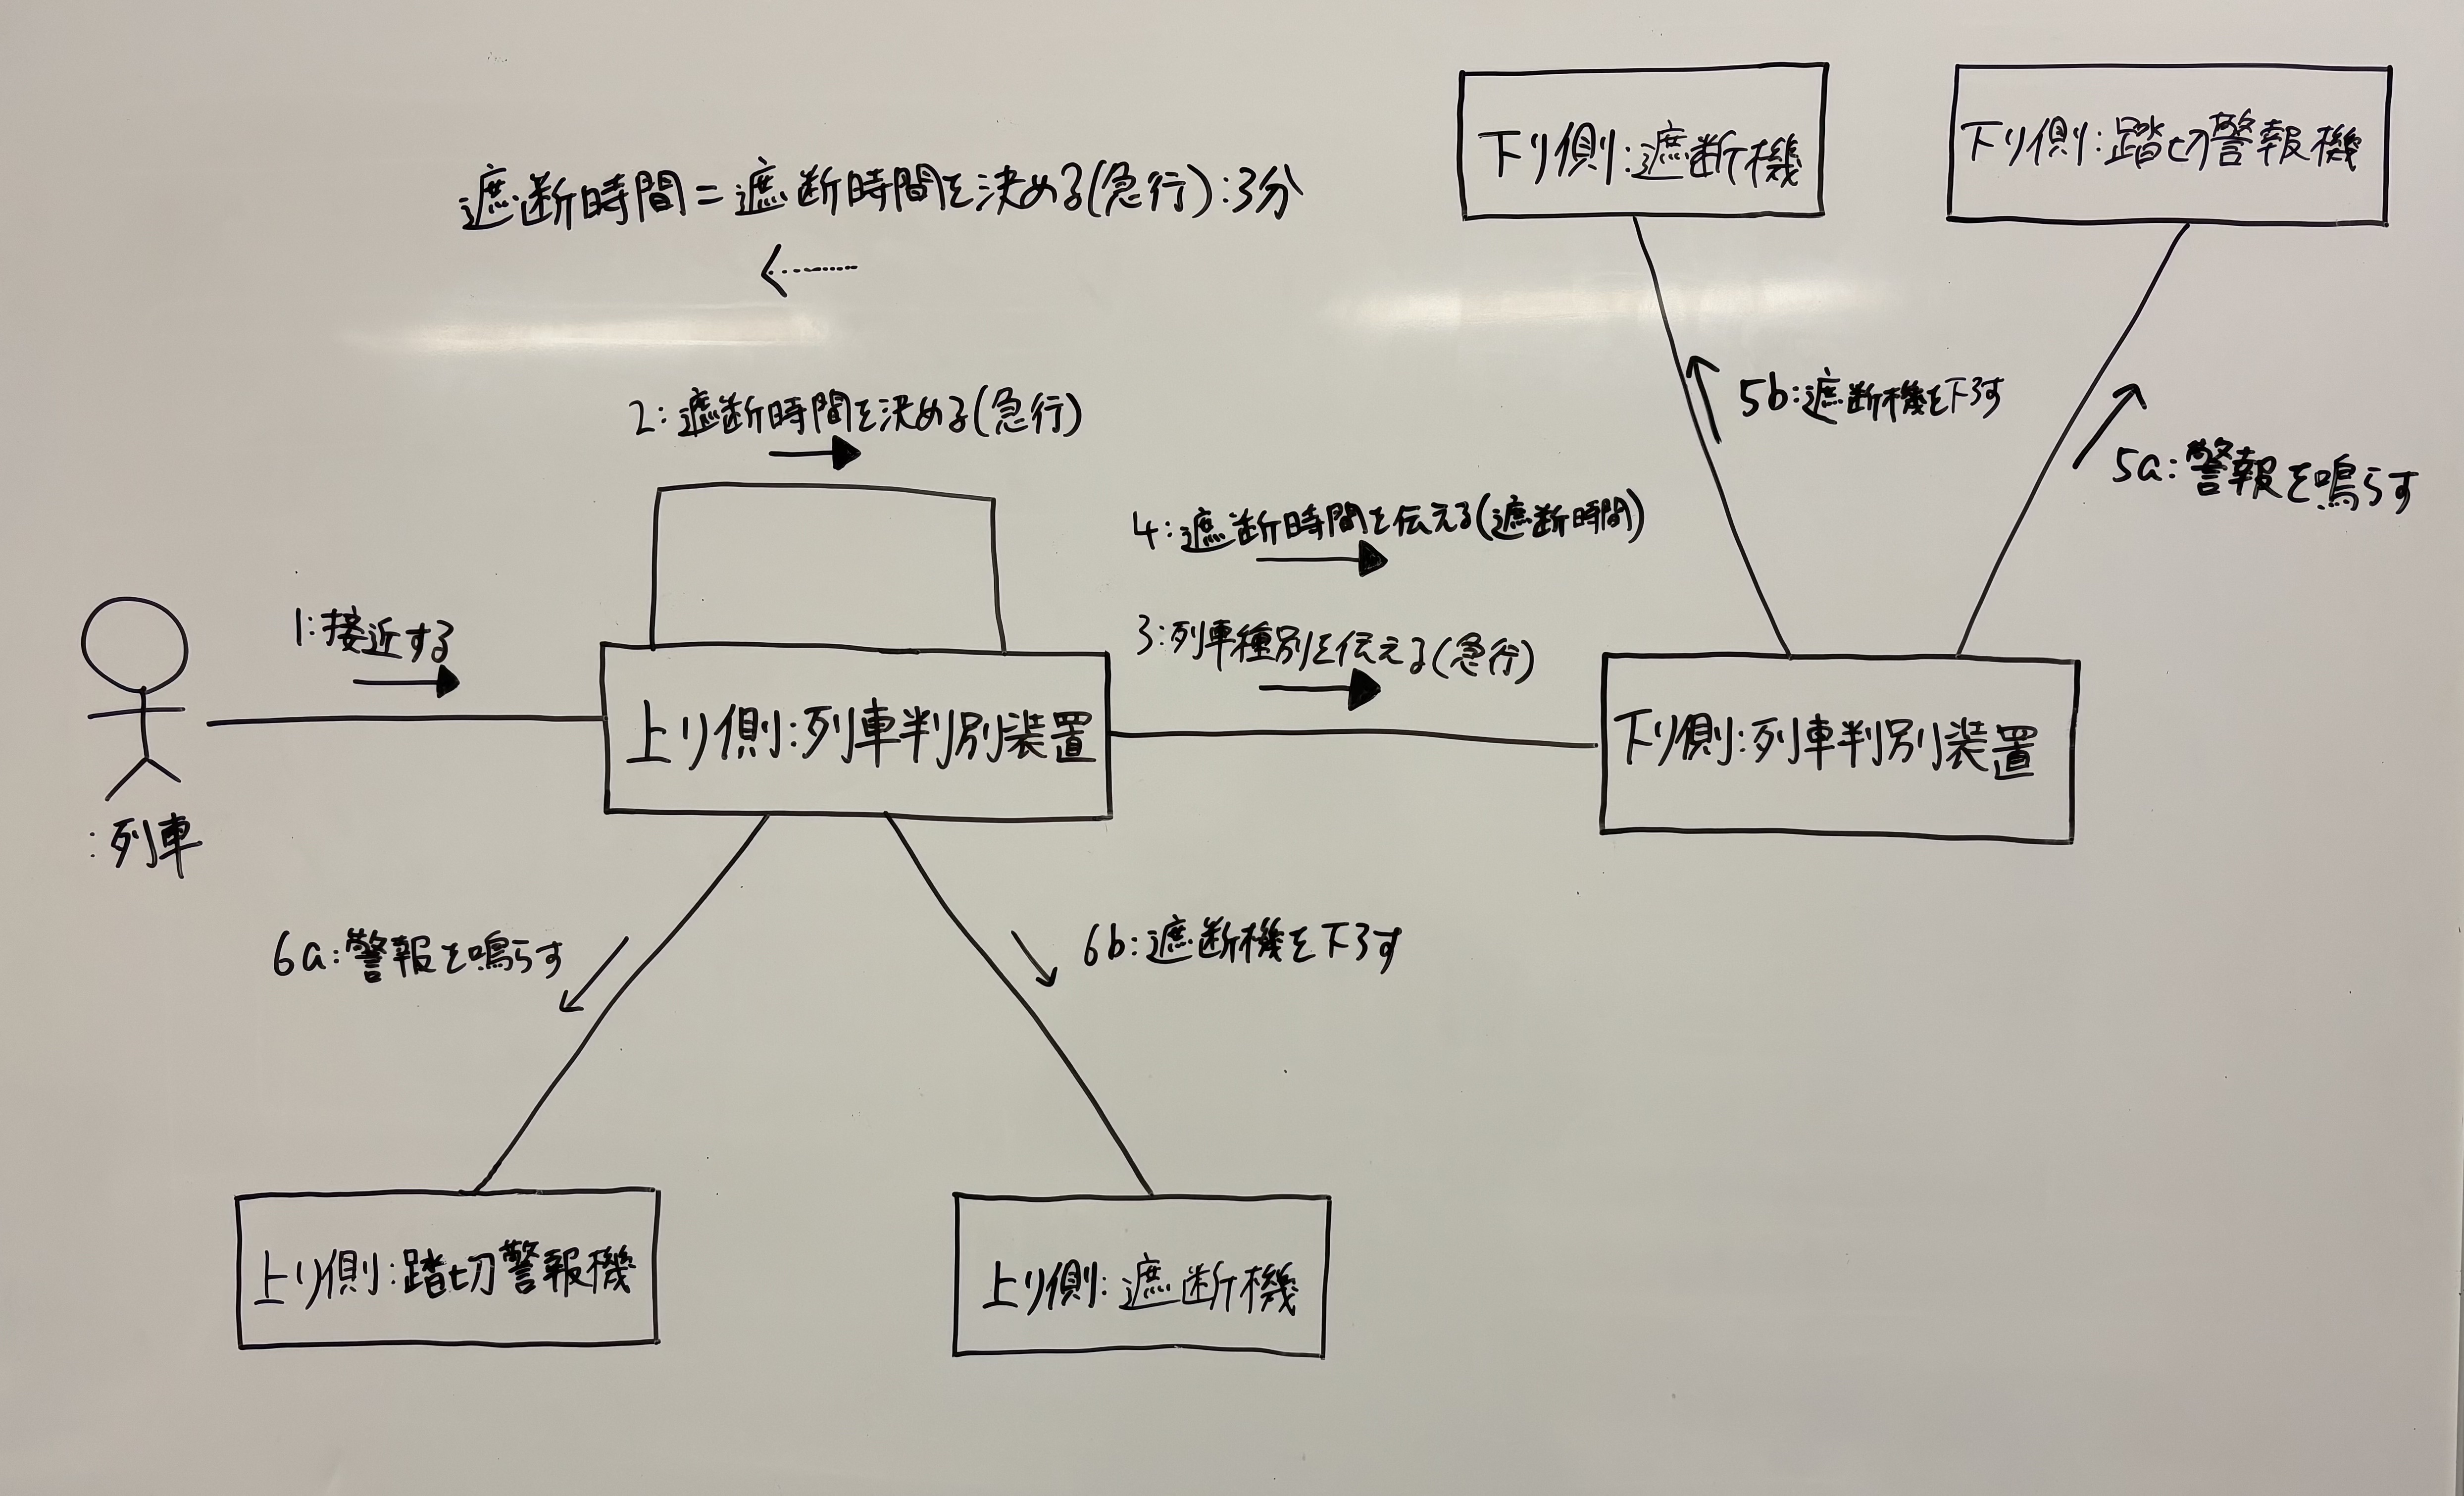 下り側:遮断機
下り側:踏切警報機
遮断時間=遮断時間を決める(急行):3分
2:遮断時間を決める(急行)
5b:遮断機を下ろす
5a:警報を鳴らす
4:遮断時間を伝える(遮断時間)
1:接近する
3:列車種別を伝える(急行)
上り側:列車判別装置
下り側:列車判別装置
:列車
6a:警報を鳴らす
6b:遮断機を下ろす
上り側:踏切警報機
上り側:遮断機